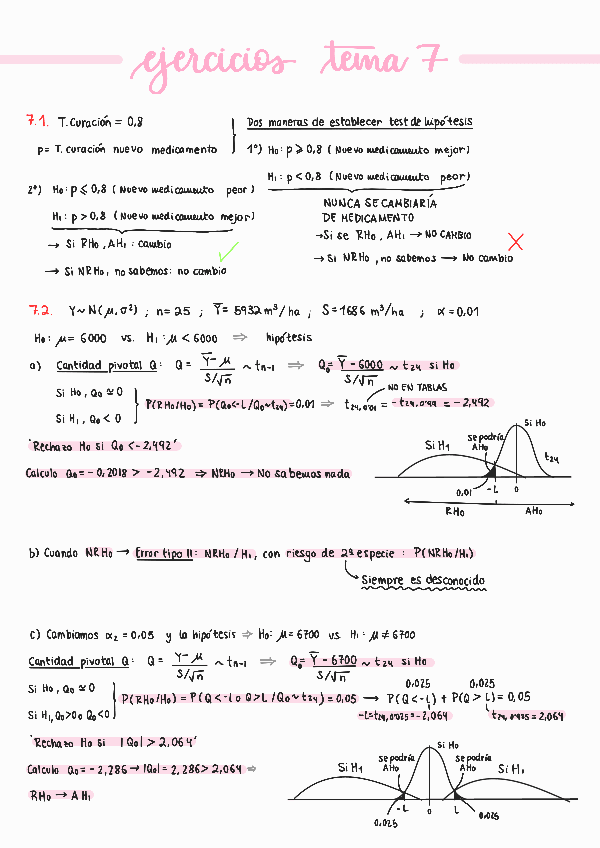 ejercicios tema 7
7.1. T.Curación = 0,8
p = T. curación nuevo medicamento
Dos maneras de establecer test de hipótesis
1º) H₀: p ⩾ 0,8 (Nuevo medicamento mejor)
H₁: p < 0,8 (Nuevo medicamento peor)
NUNCA SE CAMBIARÍA
DE MEDICAMENTO
→ Si se RH₀, AH₁ → NO CAMBIO
→ Si NRH₀, no sabemos → No cambio
2º) H₀: p ⩽ 0,8 (Nuevo medicamento peor)
H₁: p > 0,8 (Nuevo medicamento mejor)
→ Si RH₀, AH₁: cambio
→ Si NRH₀, no sabemos: no cambio
7.2. Y~N(μ, σ²) ; n = 25 ; Ȳ = 5932 m³/ha ; S = 1686 m³/ha ; α = 0,01
H₀: μ = 6000 vs. H₁: μ < 6000 ⇒ hipótesis
a) Cantidad pivotal Q: Q = Ȳ - μ / S/√n ~ tn-1 ⇒ Q₀ = Ȳ - 6000 / S/√n ~ t24 si H₀
Si H₀, Q₀ ≃ 0
Si H₁, Q₀ < 0
P(RH₀/H₀) = P(Q₀<-L/Q₀~t24) = 0,01 ⇒ t24,0'01 = -t24,0'99 = -2,492
NO EN TABLAS
'Rechazo H₀ si Q₀ < -2,492'
Calculo Q₀ = -0,2018 > -2,492 ⇒ NRH₀ → No sabemos nada
Si H₁
se podría
AH₀
Si H₀
t24
0,01 -L 0
RH₀ AH₀
b) Cuando NRH₀ → Error tipo II: NRH₀/H₁, con riesgo de 2ª especie: P(NRH₀/H₁)
Siempre es desconocido
c) Cambiamos α₂ = 0,05 y la hipótesis ⇒ H₀: μ = 6700 vs H₁: μ ≠ 6700
Cantidad pivotal Q: Q = Ȳ - μ / S/√n ~ tn-1 ⇒ Q₀ = Ȳ - 6700 / S/√n ~ t24 si H₀
Si H₀, Q₀ ≃ 0
Si H₁, Q₀>0 o Q₀<0
P(RH₀/H₀) = P(Q<-L o Q>L/Q₀~t24) = 0,05 → P(Q<-L) + P(Q>L) = 0,05
0,025 0,025
-L=t24,0'025=-2,064 t24,0'975=2,064
'Rechazo H₀ si |Q₀| > 2,064'
Calculo Q₀ = -2,286 → |Q₀| = 2,286 > 2,064 ⇒
RH₀ → AH₁
Si H₁
se podría
AH₀
Si H₀
se podría
AH₀
Si H₁
-L 0 L
0,025 0,025